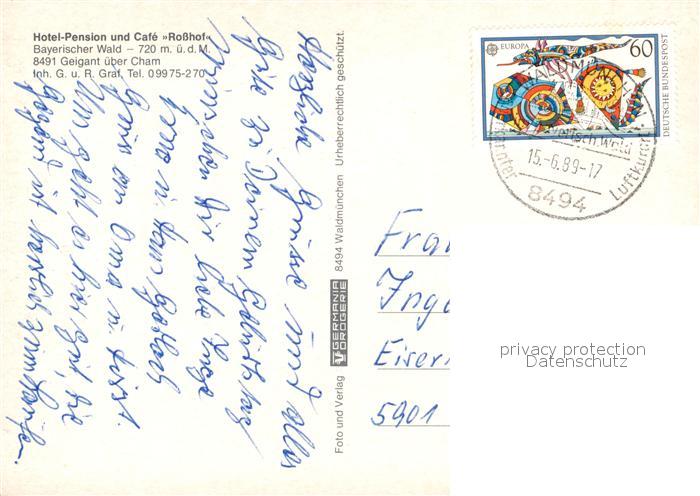 Hotel-Pension und Café »Roßhof«
Bayerischer Wald – 720 m. ü. d. M.
8491 Geigant über Cham
Inh. G. u. R. Graf, Tel. 09975-270
Herzliche Grüsse und alles
Gute zu Deinem Geburtstag
wünschen Dir liebe Inge
Erna u.
Gruss an Oma u.
Uns geht es hier gut, die
Gegend ist herrlich
Foto und Verlag GERMANIA DROGERIE 8494 Waldmünchen Urheberrechtlich geschützt.
EUROPA 60
DEUTSCHE BUNDESPOST
15.-6.89-17
8494
Luftkurort
Frau
Inge
5901
privacy protection
Datenschutz